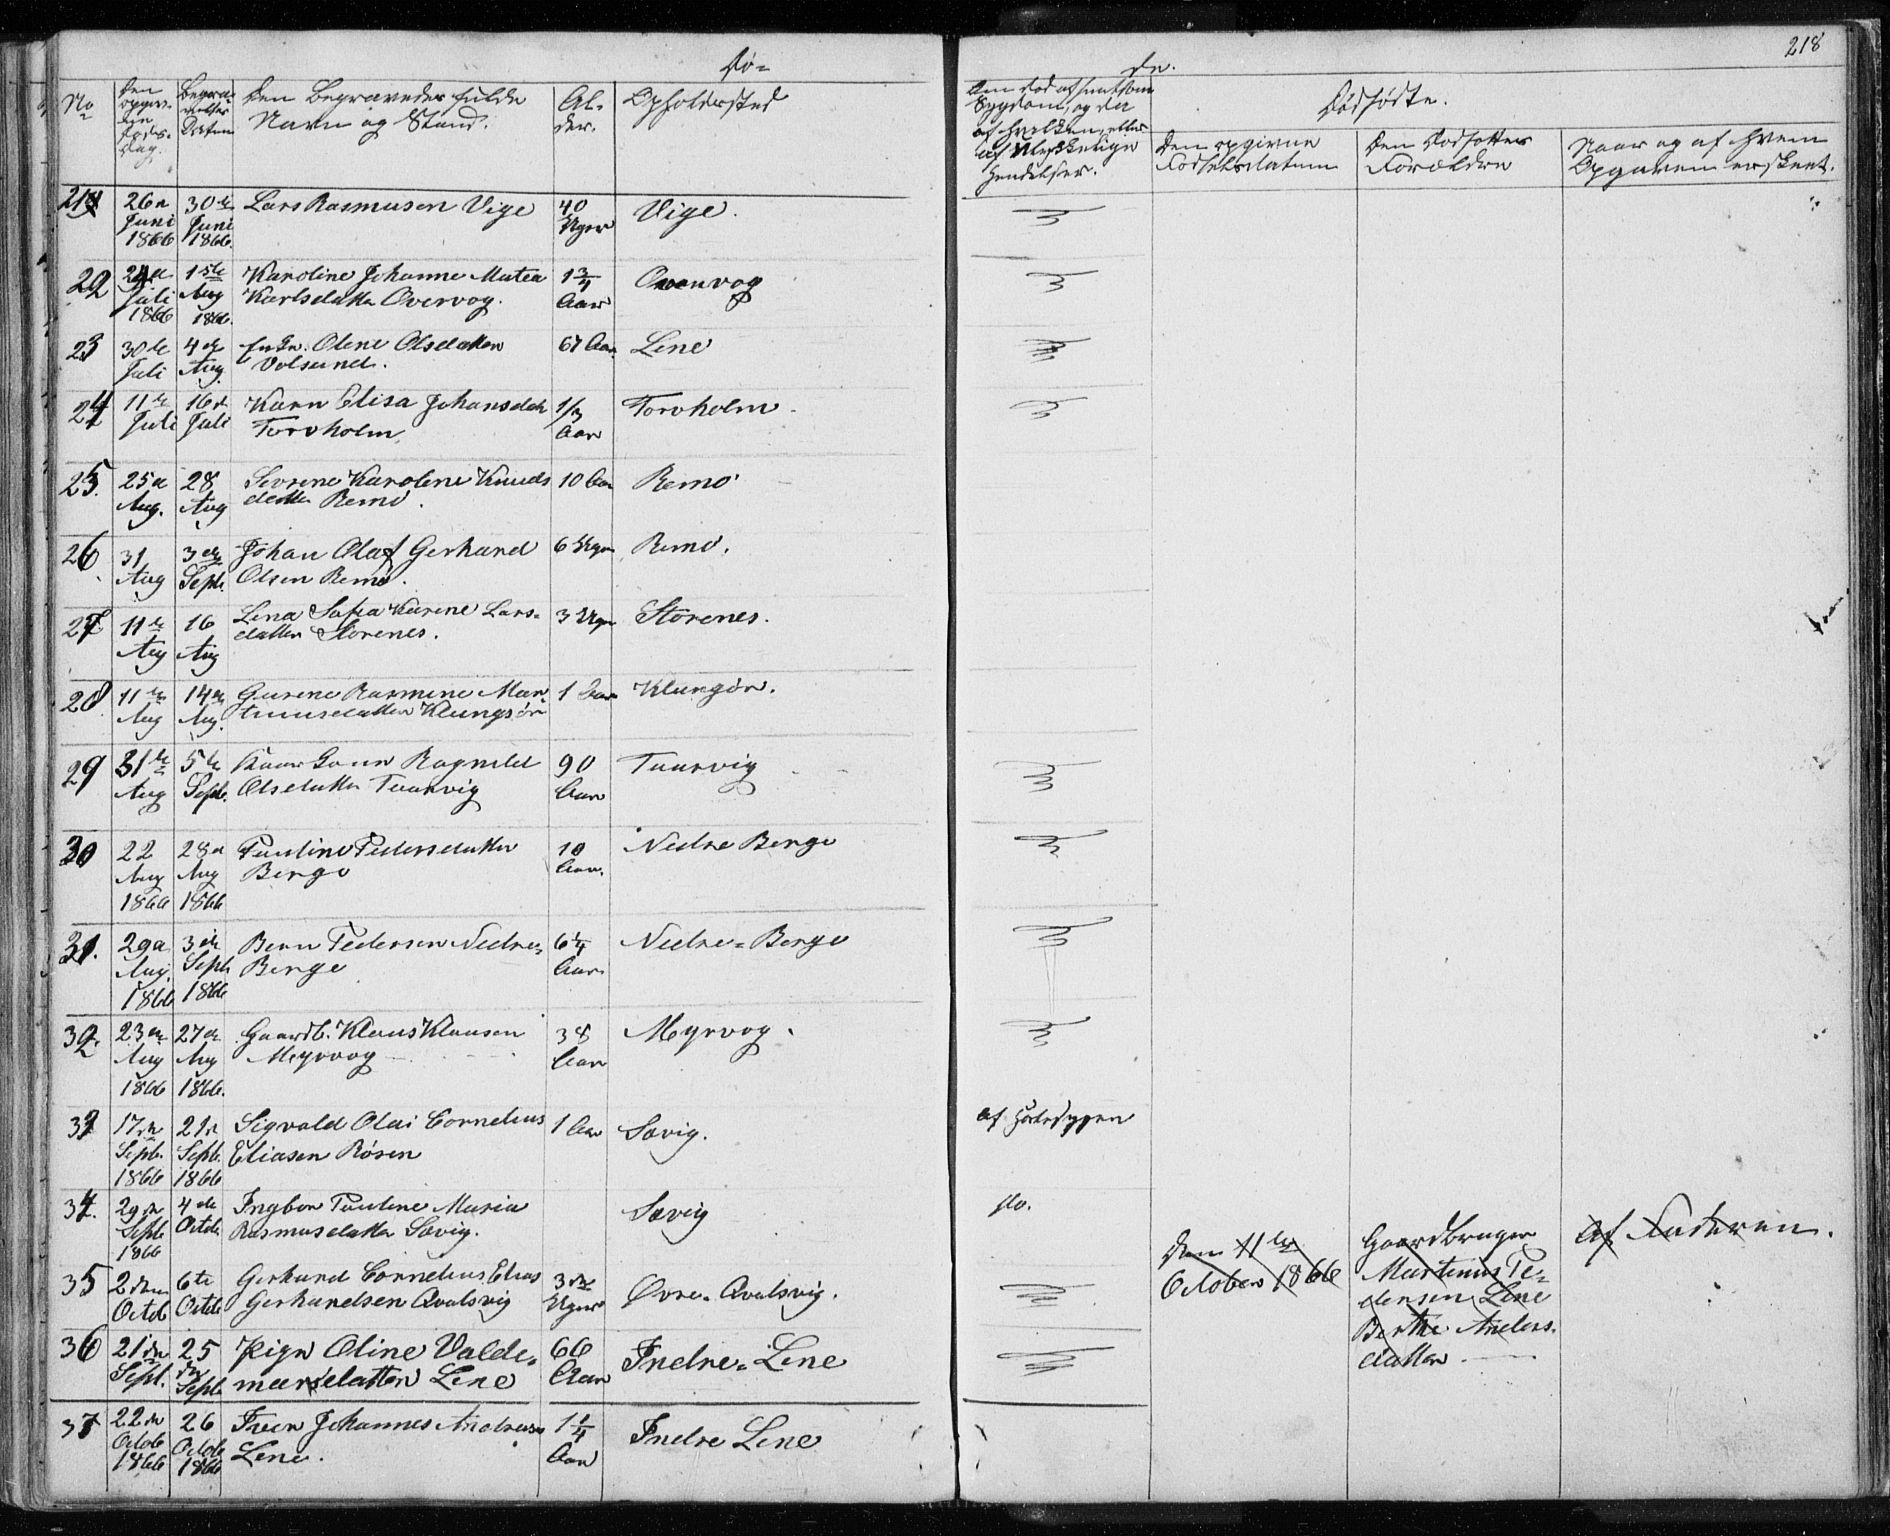 218
Dø-
de.
No
Den opgivne Dødsdag.
Begravelses Datum
Den Begravedes fulde
Navn og Stand.
Al-
der.
Opholdssted
Dødfødte.
Den opgivne
Fødselsdatum
Den Dødfødtes
Forældre
Naar og af hvem
Opgaven er skeet.
21 26de Juni 1866 30te Juni 1866. Lars Rasmusen Vige 40 Uger Vige.
22 Juli 1866 1ste Aug 1866. Karoline Johanne Matea
Karlsdatter Overvog. 1 3/4 Aar
23 30te Juli 4de Aug. Enke. Olene Olsdatter
Volsund. 67 Aar Lene
24 11te Juli 16de Juli Karn Elisa Johansdatr
Torvholm 1/3 Aar Torvholm
25. 25de Aug. 28 Aug Sevrene Karolene Knuds
datter Remø. 10 Aar Remø
26. 31 Aug 3die Septr. Johan Olaf Gerhard
Olsen Remø. 6 Uger Remø.
27 11te Aug 16 Aug Lena Sofia Karene Lars-
datter Storenes. 3 Uger Storenes.
28 11te Aug 14de Aug. Gurene Rasmine Mar
tinusdatter Klungsør 1 Aar Klungsør.
29 31te Aug 5te Septr. Ragnild
Olsdatter Tuurvig 90 Aar Tuurvig
30 22 Aug 1866 28de Aug 1866 Pauline Pedersdatter
Berge 10 Aar. Nedre Berge
31. 29de Aug. 1866 3die Septr 1866 Bern Pedersen Nedre-
Berge 6 1/4 Aar Nedre-Berge
32. 23de Aug 1866 27de Aug 1866. Gaardb. Klaus Klausen
Myrvog 38 Aar Myrvog.
33 17de Septbr. 1866 21de Septb. 1866 Sigvald Olai Cornelius
Eliasen Røsen 1 Aar Sævig. af Halssygen
34. 29de Septb 1866 4de Octbr. Ingbor Pauline Maria
Rasmusdatter Sævig. Sævig do.
35 2den Octob 6te Octob Gerhard Cornelius Elias
Gerhardsen Qvalsvig 3 Uger Øvre-Qvalsvig.
Den 11te
October 1866
Gaardbruger
Martinus Pe-
dersen Lene
Berthe Anders.
datter
af Faderen.
36 21de Sept. 25 de Septb Pige Oline Valde-
marsdatter Lene 66 Aar Indre-Lene
37 22de Octob 1866 26 Octob 1866 Iver Johannes Andreas
Lene. 1 1/4 Aar Indre Lene